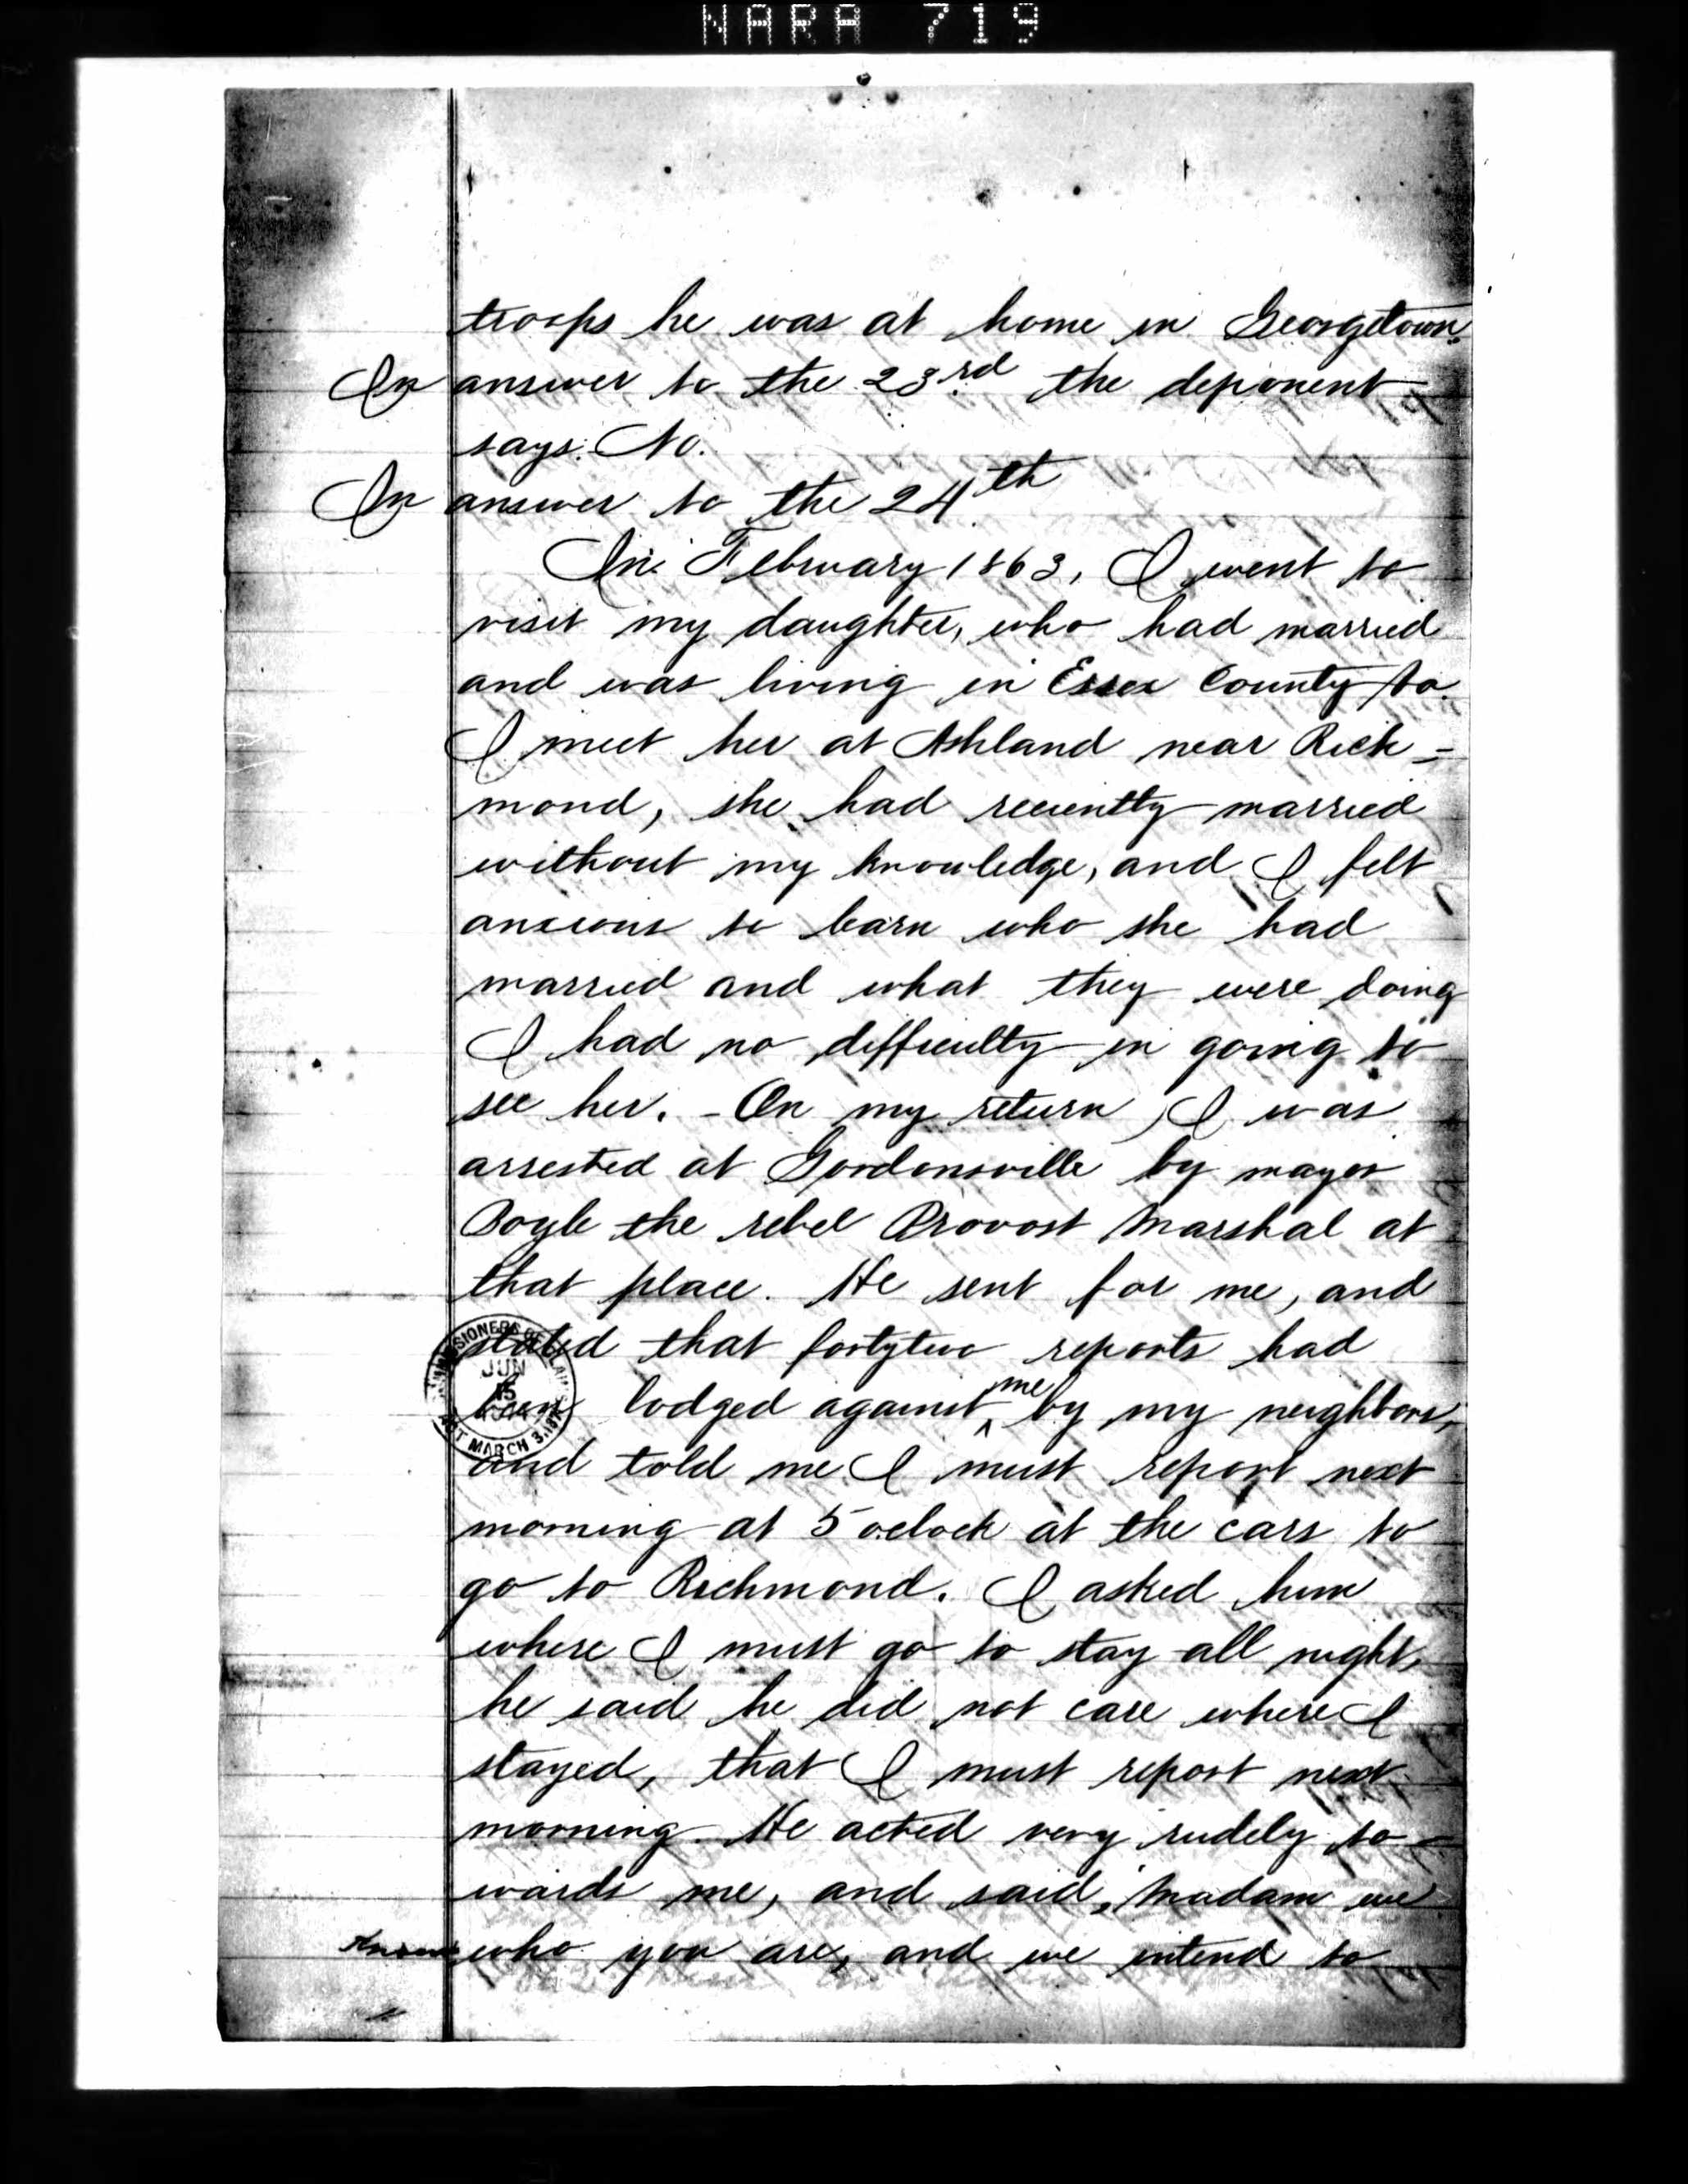 NARA 719
troops he was at home in Georgetown.
In answer to the 23rd. the deponent
says. No.
In answer to the 24th
In February 1863, I went to
visit my daughter, who had married
and was living in Essex County Va.
I meet her at Ashland near Rich=
mond, she had recently married
without my knowledge, and I felt
anxious to learn who she had
married and what they were doing
I had no difficulty in going to
see her. - On my return, I was
arrested at Gordonsville by mayor
Boyle the rebel Provost Marshal at
that place. He sent for me, and
stated that fortytwo reports had
been lodged against me by my neighbors,
and told me I must report next
morning at 5 oclock at the cars to
go to Richmond. I asked him
where I must go to stay all night,
he said he did not care where I
stayed, that I must report next
morning. He acted very rudely to=
wards me, and said, "Madam we
know who you are, and we intend to
COMMISSIONERS OF CLAIMS
JUN
15
ACT MARCH 3, 1871